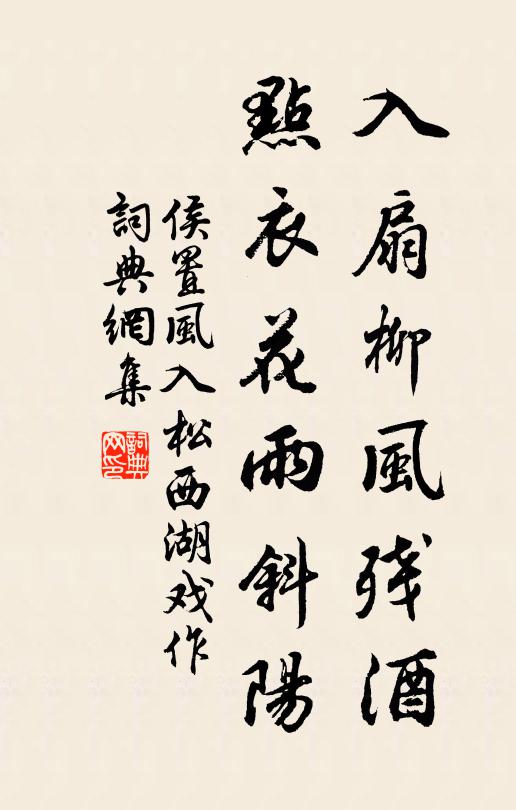 入扇柳風残酒
點衣花雨斜陽
侯置風入松西湖戏作
詞典網集
詞典网印